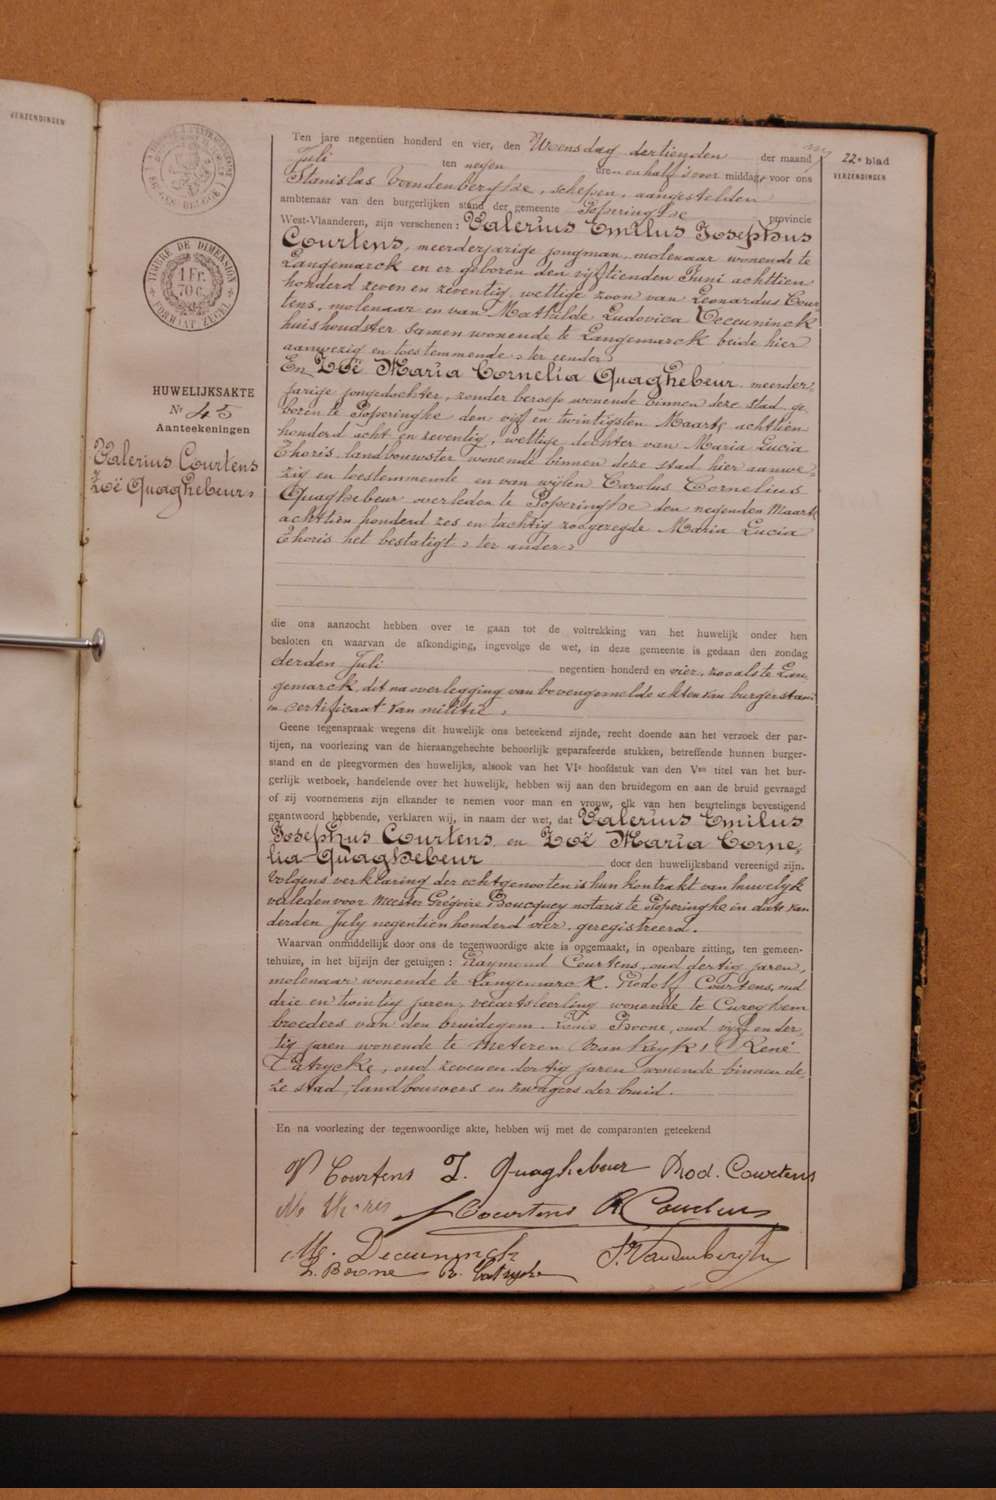 VERZENDINGEN
22e blad
VERZENDINGEN
TIMBRE DE DIMENSION
1 Fr.
70 c.
FORMAAT ZEGEL
HUWELIJKSAKTE
No 45
Aanteekeningen
Valerius Courtens
Zoë Quaghebeur
Ten jare negentien honderd en vier, den Woensdag dertienden der maand
Juli ten negen uren en half 's voor middag, voor ons
Stanislas Vandenberghe, schepen, aangestelden
ambtenaar van den burgerlijken stand der gemeente Poperinghe provincie
West-Vlaanderen, zijn verschenen: Valerius Emilus Josephus
Courtens, meerderjarige jongman, molenaar wonende te
Langemarck en er geboren den vijftienden Juni achttien
honderd zeven en zeventig, wettige zoon van Leonardus Cour
tens, molenaar en van Mathilde Ludovica Deceuninck
huishoudster samen wonende te Langemarck beide hier
aanwezig en toestemmende, ter eender
En Zoë Maria Cornelia Quaghebeur, meerder,
jarige jongedochter, zonder beroep wonende binnen deze stad, ge,
boren te Poperinghe den vijf en twintigsten Maart achttien
honderd acht en zeventig, wettige dochter van Maria Lucia
Thoris, landbouwster wonende binnen deze stad hier aanwe,
zig en toestemmende en van wijlen Carolus Cornelius
Quaghebeur overleden te Poperinghe den negenden Maart
achttien honderd zes en tachtig zoogezegde Maria Lucia
Thoris het bestatigt, ter ander,
die ons aanzocht hebben over te gaan tot de voltrekking van het huwelijk onder hen
besloten en waarvan de afkondiging, ingevolge de wet, in deze gemeente is gedaan den zondag
derden Juli negentien honderd en vier, zooals te Lan,
gemarck, dit na overlegging van bovengemelde akten van burgerstand
en certificaat van militie.
Geene tegenspraak wegens dit huwelijk ons beteekend zijnde, recht doende aan het verzoek der par-
tijen, na voorlezing van de hieraangehechte behoorlijk geparafeerde stukken, betreffende hunnen burger-
stand en de pleegvormen des huwelijks, alsook van het VIe hoofdstuk van den Ven titel van het bur-
gerlijk wetboek, handelende over het huwelijk, hebben wij aan den bruidegom en aan de bruid gevraagd
of zij voornemens zijn elkander te nemen voor man en vrouw, elk van hen beurtelings bevestigend
geantwoord hebbende, verklaren wij, in naam der wet, dat Valerius Emilus
Josephus Courtens en Zoë Maria Corne,
lia Quaghebeur door den huwelijksband vereenigd zijn.
Volgens verklaring der echtgenooten is hun kontrakt van huwelyk
verleden voor Meester Grégoire Boucquey notaris te Poperinghe in date van
derden July negentien honderd vier, geregistreerd.
Waarvan onmiddelijk door ons de tegenwoordige akte is opgemaakt, in openbare zitting, ten gemeen-
tehuize, in het bijzijn der getuigen: Raymond Courtens, oud dertig jaren,
molenaar wonende te Langemarck, Rodolf Courtens, oud
drie en twintig jaren, veeartsleerling wonende te Cureghem
broeders van den bruidegom, Louis Boone, oud vijf en der,
tig jaren wonende te Meteren Vrankryk, René
Catrycke, oud zeven en dertig jaren wonende binnen de,
ze stad, landbouwers en zwagers der bruid.
En na voorlezing der tegenwoordige akte, hebben wij met de comparanten geteekend
V Courtens Z. Quaghebeur Rod. Courtens
M. Thoris L Courtens R. Courtens
M. Deceuninck St Vandenberghe
L. Boone R. Catrycke